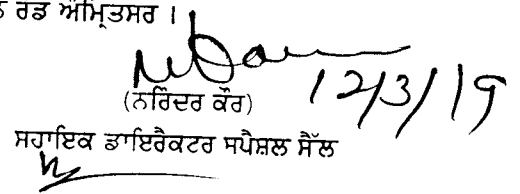 ਰੋਡ ਅੰਮ੍ਰਿਤਸਰ ।
12/3/19
(ਨਰਿੰਦਰ ਕੌਰ)
ਸਹਾਇਕ ਡਾਇਰੈਕਟਰ ਸਪੈਸ਼ਲ ਸੈੱਲ